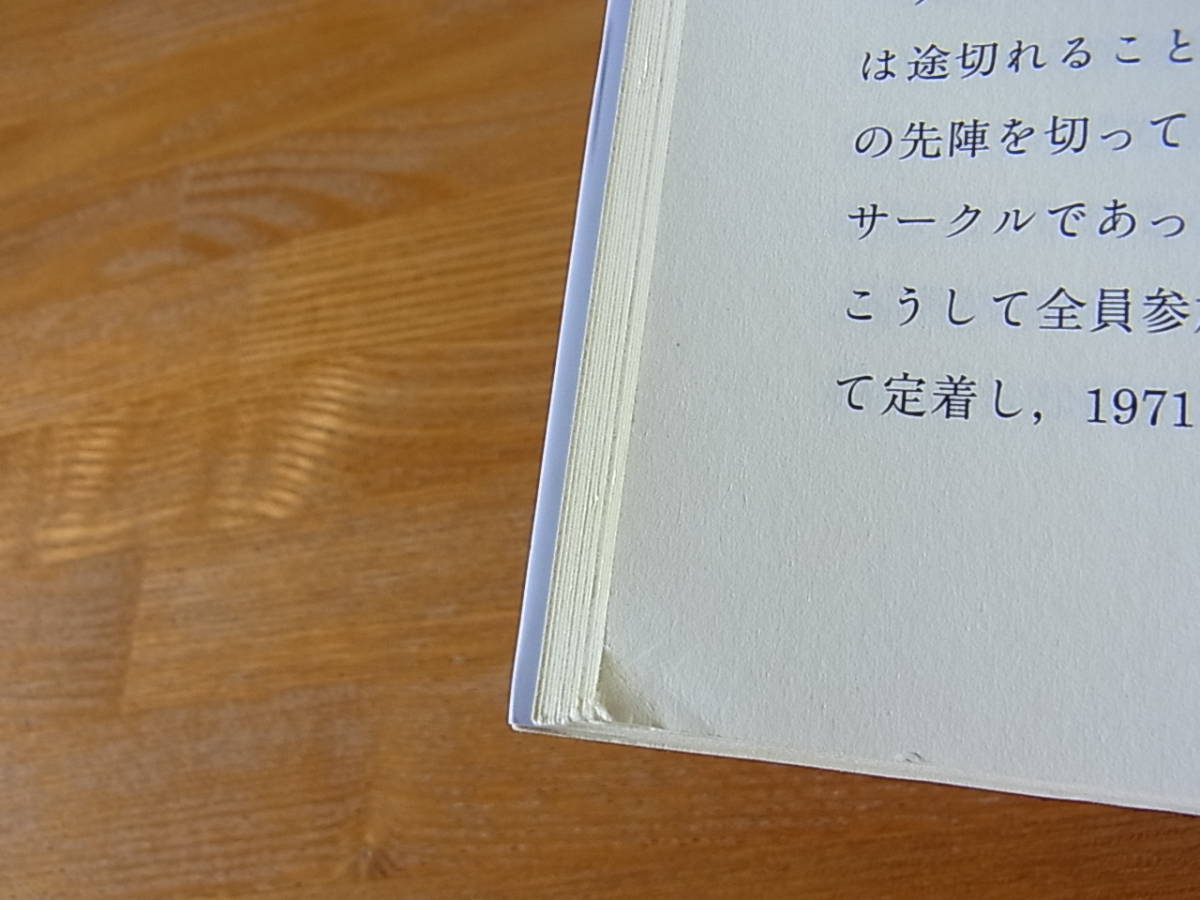 は途切れること
の先陣を切って
サークルであっ
こうして全員参
て定着し，1971